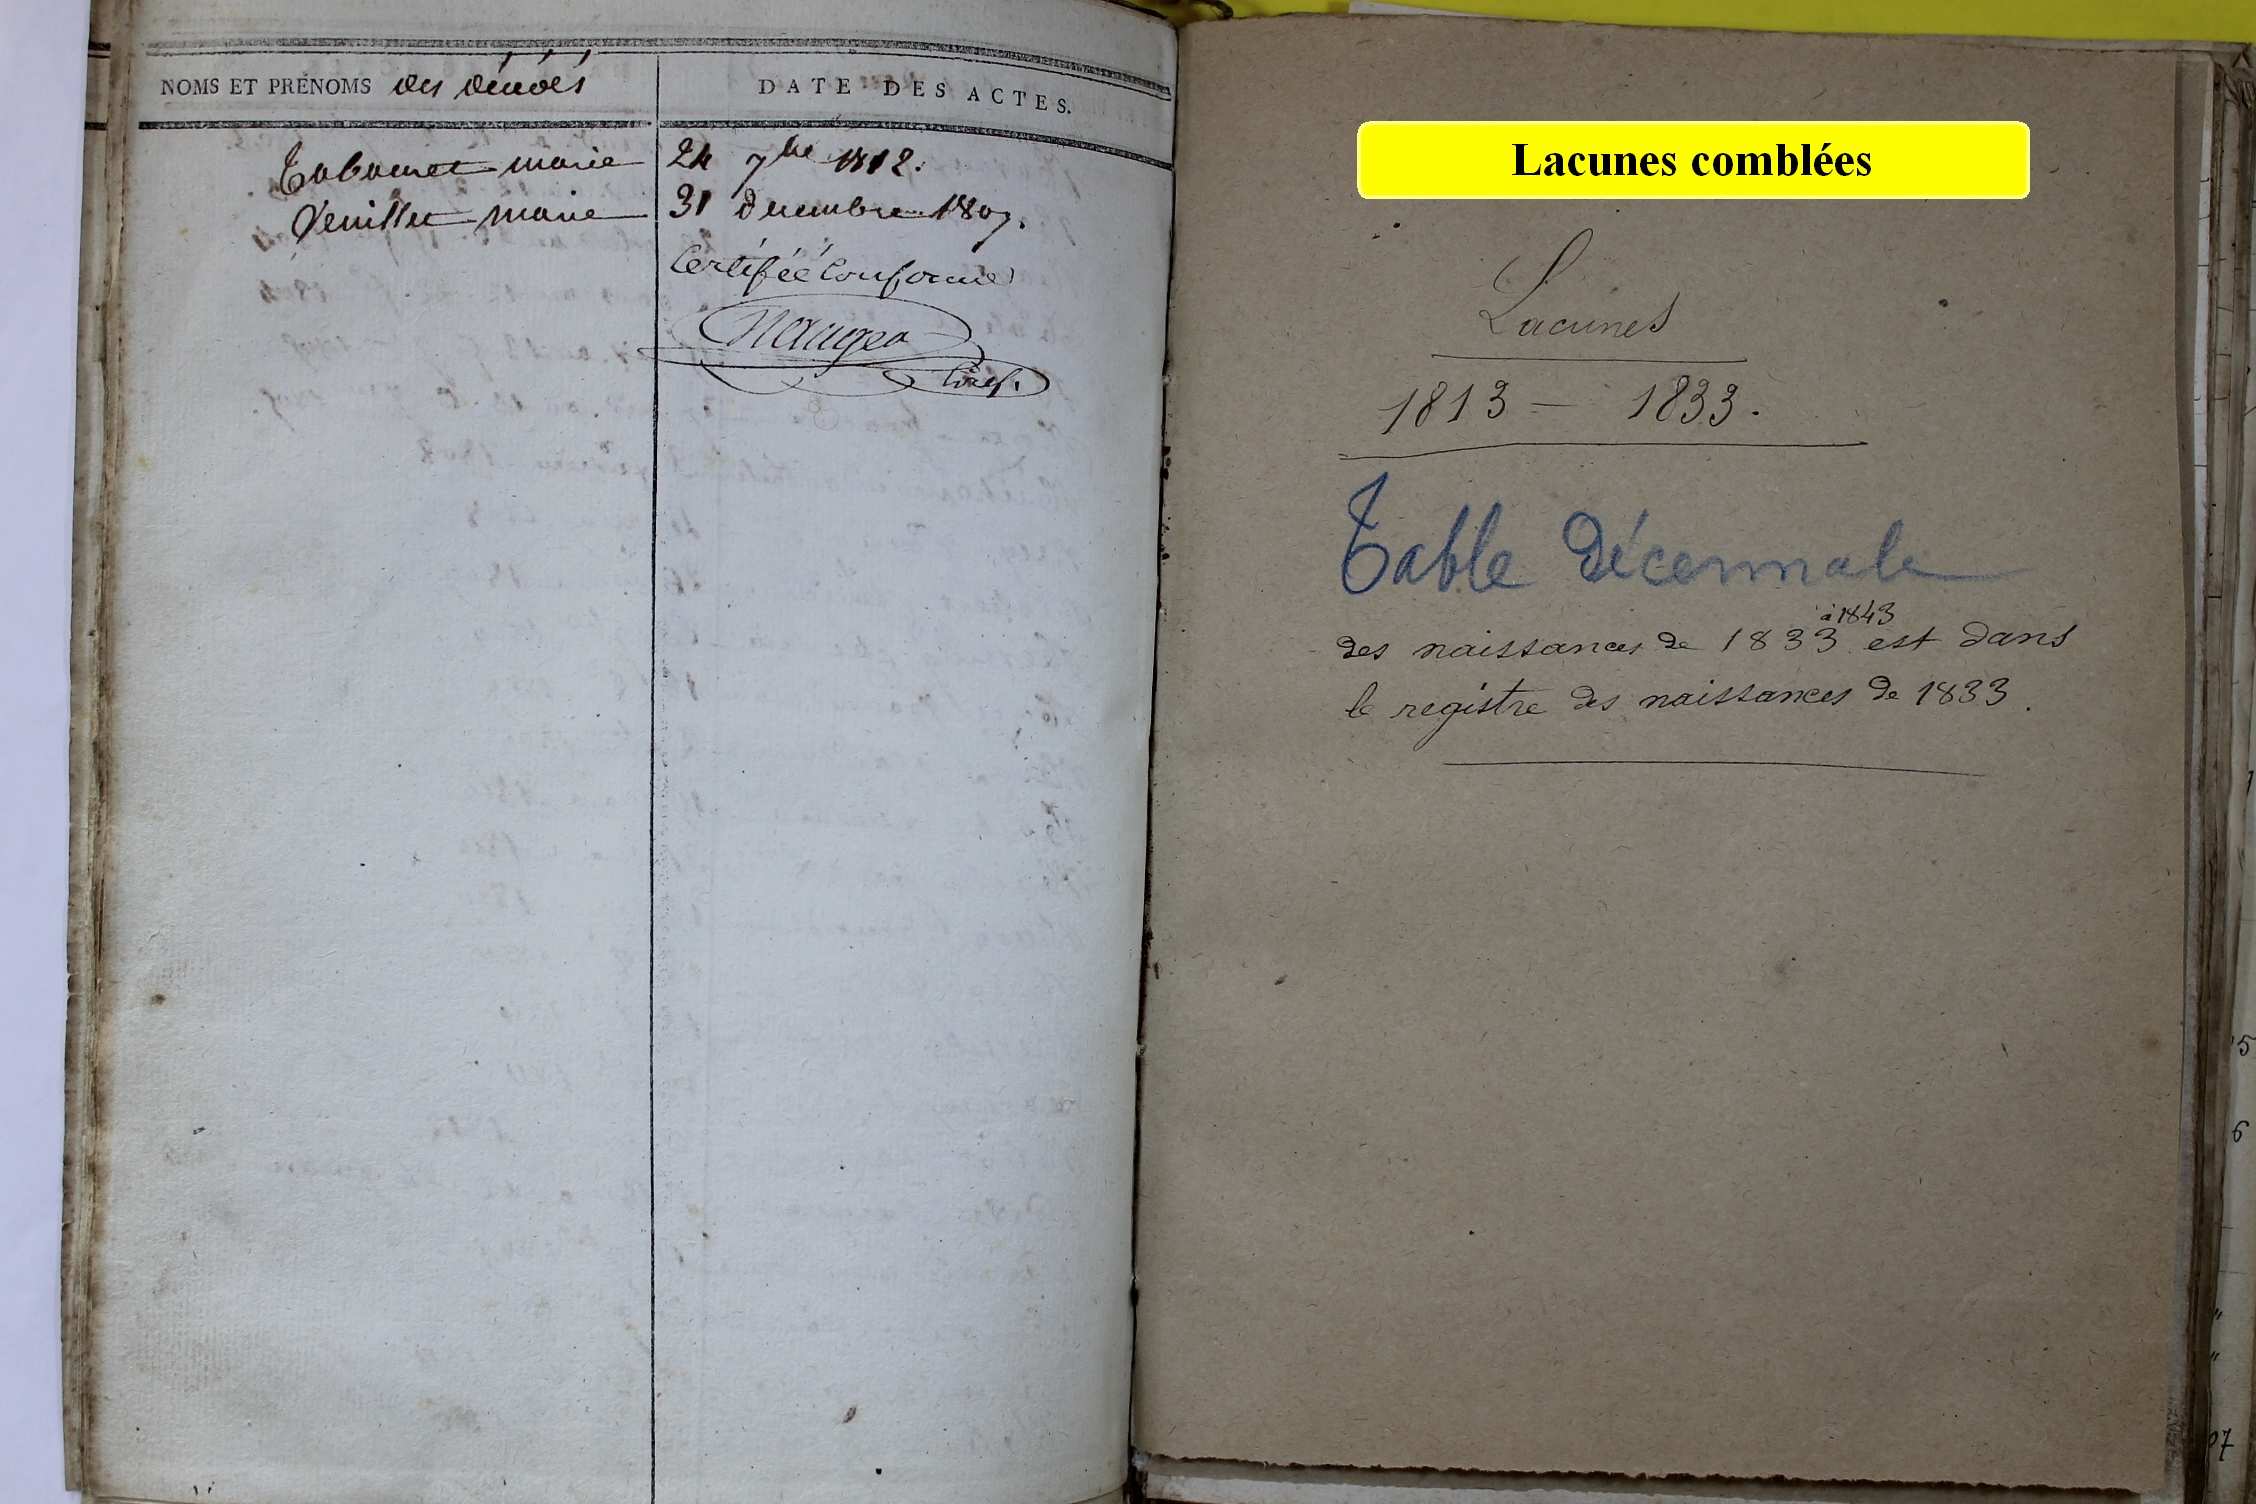 NOMS ET PRÉNOMS des décédés
DATE DES ACTES.
Tabouret marie 24 7bre 1812.
Venillet marie 31 decembre 1807.
Certifiée Conforme
Naugea
Gref.
Lacunes comblées
Lacunes
1813 — 1833.
Table Décennale
à 1843
des naissances de 1833 est dans
le registre des naissances de 1833.
5
6
"
"
07